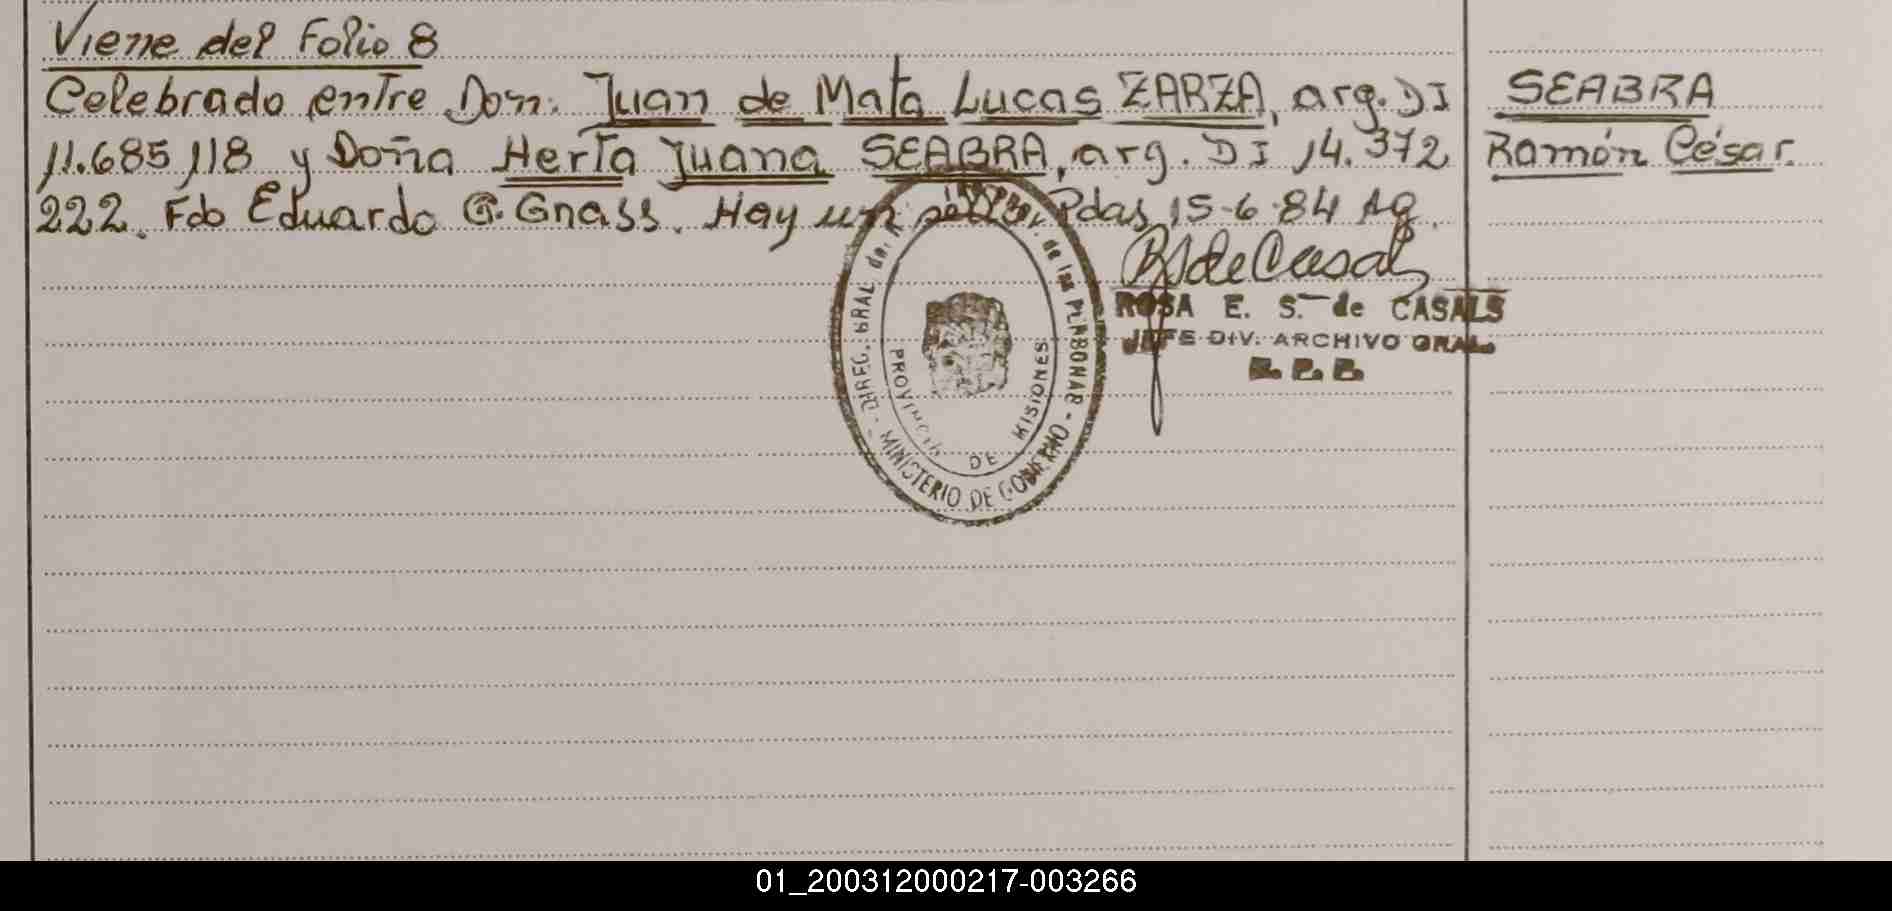 Viene del Folio 8
Celebrado entre Don. Juan de Mata Lucas ZARZA, arg. DI
11.685.118 y Doña Herta Juana SEABRA, arg. DI 14.372
222. Fdo Eduardo G. Gnass. Hay un sello. Pdas, 15-6-84 Ag.
SEABRA
Ramón César.
ROSA E. S. de CASALS
JEFE DIV. ARCHIVO GRAL.
DIREC. GRAL del R. de las PERSONAS - MINISTERIO DE GOBIERNO -
PROVINCIA DE MISIONES
01_200312000217-003266